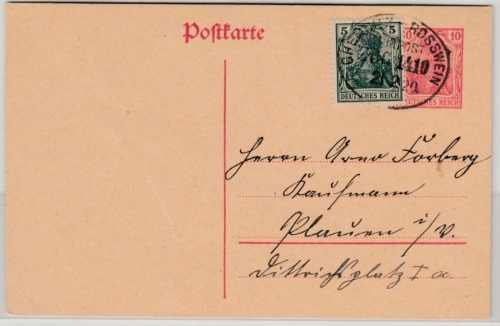 Postkarte
5 5
DEUTSCHES REICH
10
DEUTSCHES REICH
ROSSWEIN
1410
20
Herrn Arno Forberg
Kaufmann
Plauen i/V.
Dittrichsplatz